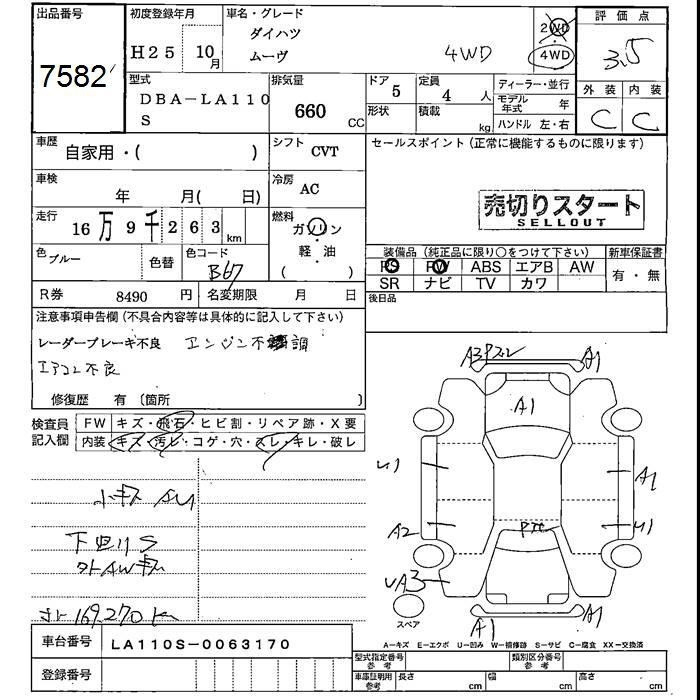 出品番号 7582
初度登録年月 H25 10月
車名・グレード ダイハツ ムーヴ 4WD
2WD 4WD
評価点 3.5
外装 内装
C C
型式 DBA-LA110S
排気量 660 CC
ドア 5
定員 4 人
形状
積載 kg
ディーラー・並行
モデル年式 年
ハンドル 左・右
車歴 自家用・( )
シフト CVT
セールスポイント(正常に機能するものに限ります)
車検 年 月( 日)
冷房 AC
売切りスタート
SELLOUT
走行 16万9千263 km
燃料 ガソリン
軽・油
( )
色 ブルー
色替
色コード B67
装備品(純正品に限り○をつけて下さい)
新車保証書
PS PW ABS エアB AW
有・無
SR ナビ TV カワ
R券 8490 円
名変期限 月 日
後日品
注意事項申告欄(不具合内容等は具体的に記入して下さい)
レーダーブレーキ不良 エンジン不調
エアコン不良
修復歴 有(箇所 )
検査員記入欄
FW キズ・飛石・ヒビ割・リペア跡・X要
内装 キズ・汚レ・コゲ・穴・スレ・キレ・破レ
小キズ AU
下回りS
外AWキズ
169,270 km
A3 A1
A1
U1 A1
A2 U1
UA3
スペア
A1 A1
A-キズ E-エクボ U-凹み W-補修跡 S-サビ C-腐食 XX-交換済
車台番号 LA110S-0063170
登録番号
型式指定番号 参考
類別区分番号 参考
車庫証明用 参考 長さ cm 幅 cm 高さ cm